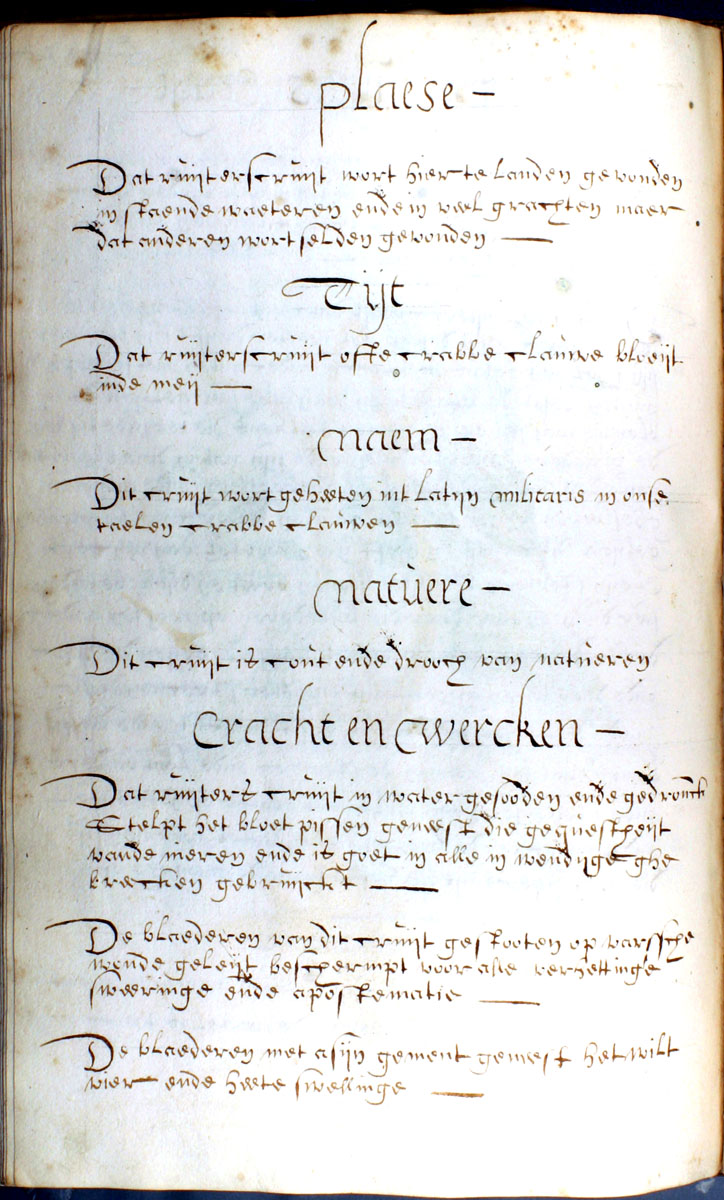 plaese –
Dat ruijterscruijt wort hier te landen gevonden
in staende waeteren ende in veel grachten maer
dat anderen wort selden gevonden —
Tijt
Dat ruijterscruijt ofte crabbe clauwe bloeijt
inde meij —
naem –
Dit cruijt wort geheeten int latijn militaris in onse
taelen crabbe clauwen —
natuere –
Dit cruijt is cout ende drooch van natueren
Cracht en wercken –
Dat ruijters cruijt in water gesooden ende gedronckē
Stelpt het bloet pissen geneest die gequestheijt
vande nieren ende is goet in alle in wendijge ghe
brecken gebruijckt —
De blaederen van dit cruijt gestooten op varssche
wonde geleijt beschermpt voor alle verhettinge
sweeringe ende apostematie —
De blaederen met asijn gement geneest het wilt
vier ende heete swellinge —